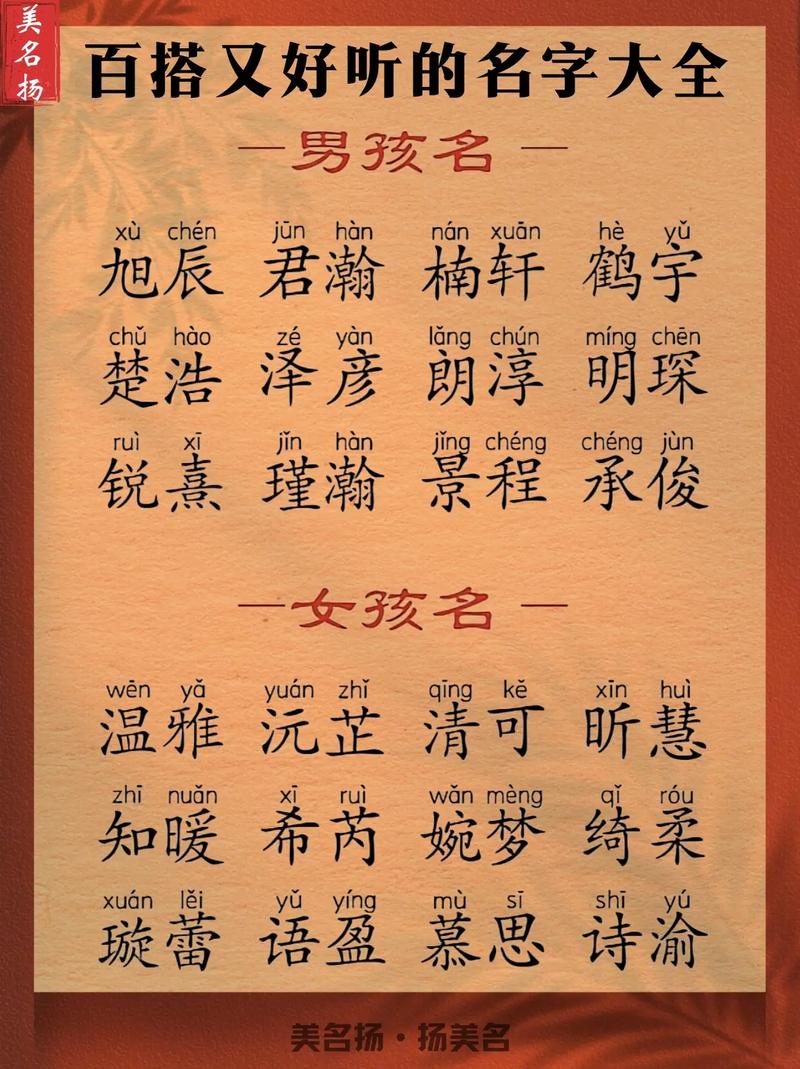 美名扬
百搭又好听的名字大全
男孩名
xù chén jūn hàn nán xuān hè yǔ
旭辰 君瀚 楠轩 鹤宇
chǔ hào zé yàn lǎng chún míng chēn
楚浩 泽彦 朗淳 明琛
ruì xī jǐn hàn jǐng chéng chéng jùn
锐熹 瑾瀚 景程 承俊
女孩名
wēn yǎ yuán zhǐ qīng kě xīn huì
温雅 沅芷 清可 昕慧
zhī nuǎn xī ruì wǎn mèng qǐ róu
知暖 希芮 婉梦 绮柔
xuán lěi yǔ yíng mù sī shī yú
璇蕾 语盈 慕思 诗渝
美名扬·扬美名